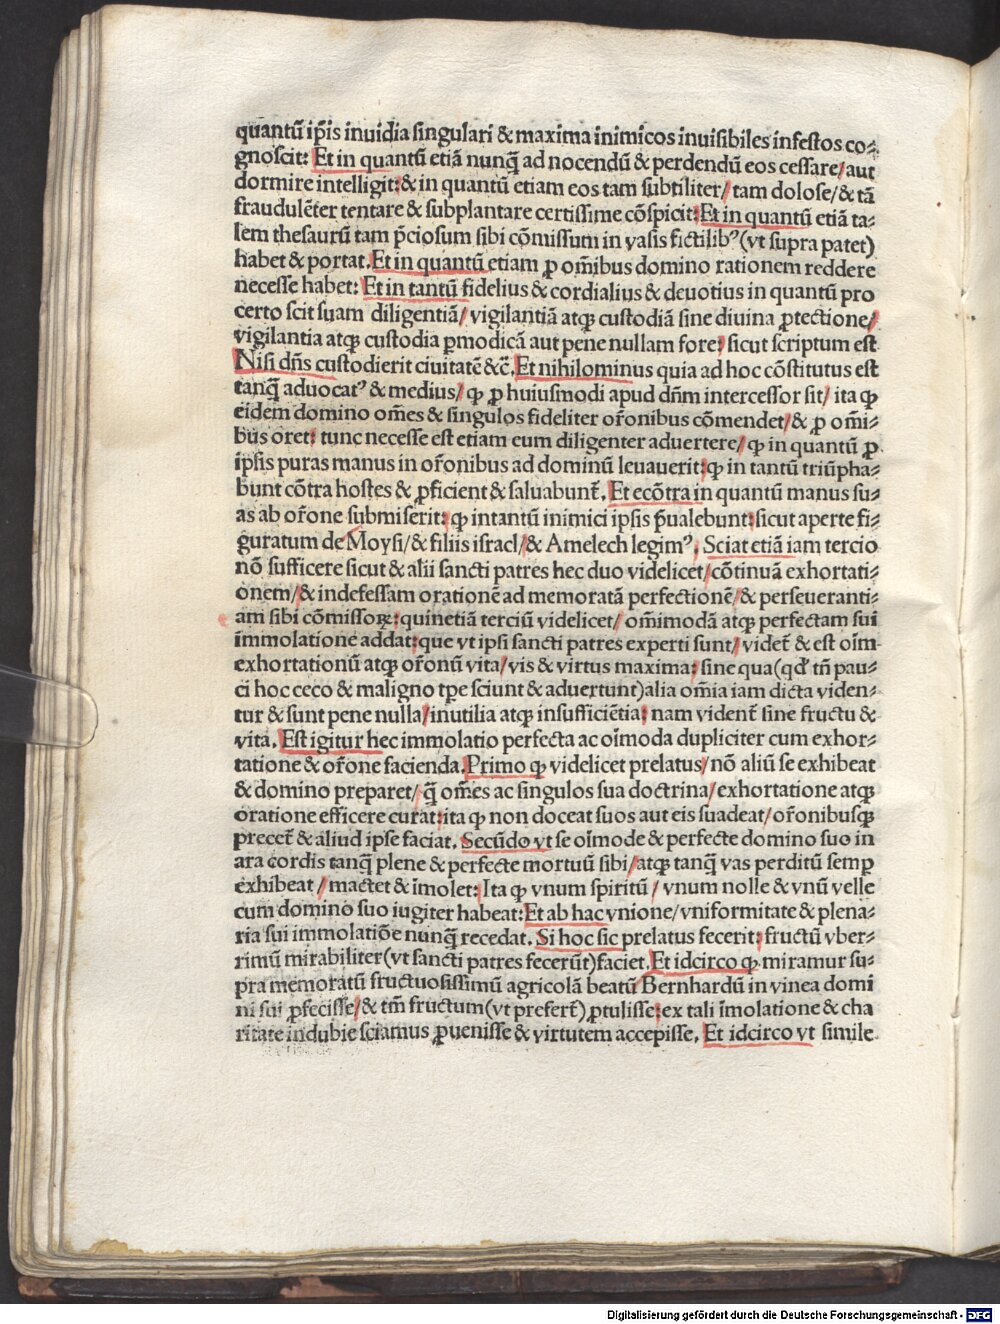 quantū ip̄is inuidia singulari & maxima inimicos inuisibiles infestos co⸗
gnoscit: Et in quantū etiā nunq̄ ad nocendū & perdendū eos cessare/aut
dormire intelligit:& in quantū etiam eos tam subtiliter/tam dolose/& tā
fraudulēter tentare & subplantare certissime cōspicit:Et in quantū etiā ta⸗
lem thesaurū tam p̄ciosum sibi cōmissum in vasis fictilibꝰ(vt supra patet)
habet & portat.Et in quantū etiam ꝓ om̄ibus domino rationem reddere
necesse habet: Et in tantū fidelius & cordialius & deuotius in quantū pro
certo scit suam diligentiā/ vigilantiā atqꝫ custodiā sine diuina ꝓtectione/
vigilantia atqꝫ custodia ꝑmodicā aut pene nullam fore: sicut scriptum est
Nisi dn̄s custodierit ciuitatē &c̄.Et nihilominus quia ad hoc cōstitutus est
tanq̄ aduocatꝰ & medius/ ꝙ ꝓ huiusmodi apud dn̄m intercessor sit/ ita ꝙ
eidem domino om̄es & singulos fideliter or̄onibus cōmendet/& ꝓ om̄i⸗
bus oret: tunc necesse est etiam eum diligenter aduertere/ ꝙ in quantū ꝓ
ipsis puras manus in or̄onibus ad dominū leuauerit:ꝙ in tantū triūpha⸗
bunt cōtra hostes & ꝓficient & saluabunt̄. Et ecōtra in quantū manus su⸗
as ab or̄one submiserit: ꝙ intantū inimici ipsis p̄ualebunt:sicut aperte fi⸗
guratum de Moysi/& filiis israel/& Amelech legimꝰ. Sciat etiā iam tercio
nō sufficere sicut & alii sancti patres hec duo videlicet/cōtinuā exhortati⸗
onem/& indefessam orationē ad memoratā perfectionē/& perseueranti⸗
am sibi cōmissoꝝ:quinetiā terciū videlicet/ om̄imodā atqꝫ perfectam sui
īmmolationē addat:que vt ipsi sancti patres experti sunt/ videt̄ & est oīm
exhortationū atqꝫ or̄onū vita/vis & virtus maxima: sine qua(qď tn̄ pau⸗
ci hoc ceco & maligno tp̄e sciunt & aduertunt)alia om̄ia iam dicta viden⸗
tur & sunt pene nulla/inutilia atqꝫ insufficiētia: nam vident̄ sine fructu &
vita. Est igitur hec immolatio perfecta ac oīmoda dupliciter cum exhor⸗
tatione & or̄one facienda.Primo ꝙ videlicet prelatus/nō aliū se exhibeat
& domino preparet/ q̄ om̄es ac singulos sua doctrina/exhortatione atqꝫ
oratione efficere curat:ita ꝙ non doceat suos aut eis suadeat/or̄onibusqꝫ
precet̄ & aliud ipse faciat. Secūdo vt se oīmode & perfecte domino suo in
ara cordis tanq̄ plene & perfecte mortuū sibi/atqꝫ tanq̄ vas perditū semꝑ
exhibeat/mactet & īmolet:Ita ꝙ vnum spiritū/ vnum nolle & vnū velle
cum domino suo iugiter habeat:Et ab hac vnione/vniformitate & plena⸗
ria sui immolatiōe nunq̄ recedat. Si hoc sic prelatus fecerit: fructū vber⸗
rimū mirabiliter(vt sancti patres fecerūt)faciet.Et idcirco ꝙ miramur su⸗
pra memoratū fructuosissimū agricolā beatū Bernhardū in vinea domi
ni sui ꝓfecisse/& tm̄ fructum(vt prefert̄)ꝓtulisse:ex tali īmolatione & cha
ritate indubie sciamus ꝓuenisse & virtutem accepisse. Et idcirco vt simile
Digitalisierung gefördert durch die Deutsche Forschungsgemeinschaft - DFG